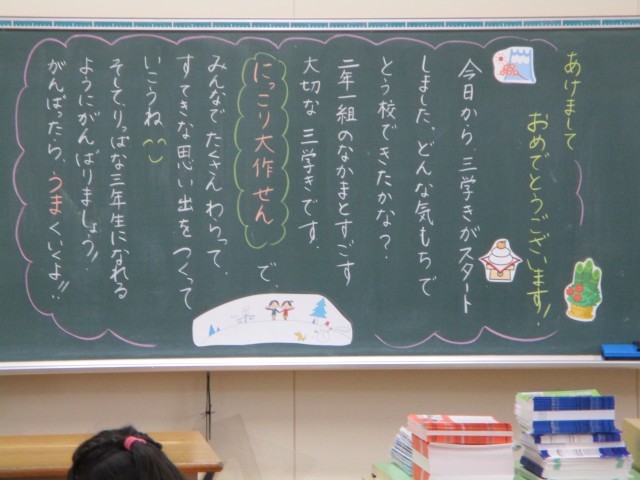 あけまして
おめでとうございます!
今日から、三学きがスタート
しました。どんな気もちで
とう校できたかな?
二年一組のなかまとすごす
大切な三学きです。
にっこり大作せん で、
みんなで、たくさんわらって、
すてきな思い出をつくって
いこうね
そして、りっぱな三年生になれる
ようにがんばりましょう!!
がんばったら、うまくいくよ!!